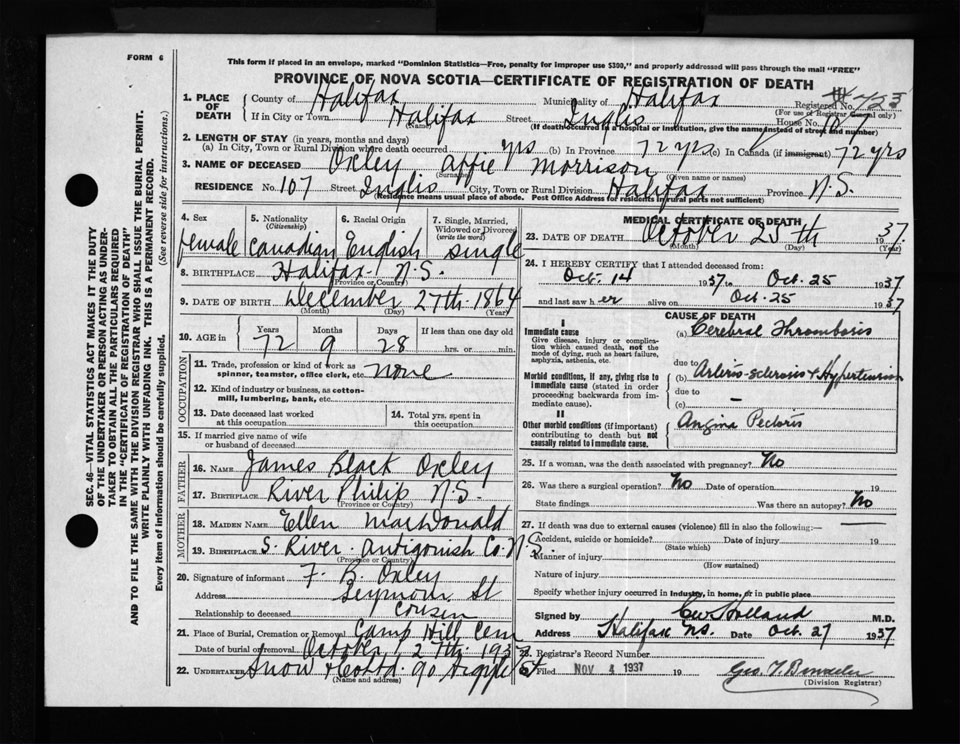 FORM 6
This form if placed in an envelope, marked "Dominion Statistics—Free, penalty for improper use $300," and properly addressed will pass through the mail "FREE"
PROVINCE OF NOVA SCOTIA—CERTIFICATE OF REGISTRATION OF DEATH
SEC. 46—VITAL STATISTICS ACT MAKES IT THE DUTY
OF THE UNDERTAKER OR PERSON ACTING AS UNDER-
TAKER TO OBTAIN ALL THE PARTICULARS REQUIRED
IN THE "CERTIFICATE OF REGISTRATION OF DEATH"
AND TO FILE THE SAME WITH THE DIVISION REGISTRAR WHO SHALL ISSUE THE BURIAL PERMIT.
WRITE PLAINLY WITH UNFADING INK. THIS IS A PERMANENT RECORD.
Every item of information should be carefully supplied. (See reverse side for instructions.)
1. PLACE OF DEATH
County of Halifax Municipality of Halifax Registered No. 423
(For use of Registrar General only)
If in City or Town Halifax Street Inglis House No. 107
(Name) (If death occurred in a hospital or institution, give the name instead of street and number)
2. LENGTH OF STAY (in years, months and days)
(a) In City, Town or Rural Division where death occurred yrs (b) In Province 72 yrs (c) In Canada (if immigrant) 72 yrs
3. NAME OF DECEASED Oxley Affie Morrison
(Surname) (Given name or names)
RESIDENCE No. 107 Street Inglis City, Town or Rural Division Halifax Province N.S.
(Residence means usual place of abode. Post Office Address for residents in rural parts not sufficient)
4. Sex
female
5. Nationality (Citizenship)
Canadian
6. Racial Origin
English
7. Single, Married, Widowed or Divorced (write the word)
single
8. BIRTHPLACE Halifax N.S.
(Province or Country)
9. DATE OF BIRTH December 27th. 1864
(Month) (Day) (Year)
10. AGE in Years Months Days If less than one day old
72 9 28 hrs. or min.
OCCUPATION
11. Trade, profession or kind of work as spinner, teamster, office clerk, etc. none
12. Kind of industry or business, as cotton-mill, lumbering, bank, etc.
13. Date deceased last worked at this occupation
14. Total yrs. spent in this occupation
15. If married give name of wife or husband of deceased
FATHER
16. NAME James Black Oxley
17. BIRTHPLACE River Philip N.S.
(Province or Country)
MOTHER
18. MAIDEN NAME Ellen MacDonald
19. BIRTHPLACE S. River Antigonish Co. N.S.
(Province or Country)
20. Signature of informant F. B. Oxley
Address Seymour St
Relationship to deceased cousin
21. Place of Burial, Cremation or Removal Camp Hill Cem
Date of burial or removal October 27th. 1937
22. UNDERTAKER Snow & Co Ltd. 90 Argyle St
(Name and address)
MEDICAL CERTIFICATE OF DEATH
23. DATE OF DEATH October 25th 1937.
(Month) (Day)
24. I HEREBY CERTIFY that I attended deceased from:
Oct. 14 1937 to Oct. 25 1937
and last saw her alive on Oct. 25 1937
CAUSE OF DEATH
I
Immediate cause
Give disease, injury or complication which caused death, not the mode of dying, such as heart failure, asphyxia, asthenia, etc.
(a) Cerebral Thrombosis
due to
Morbid conditions, if any, giving rise to immediate cause (stated in order proceeding backwards from immediate cause).
(b) Arterio-sclerosis & Hypertension
due to
(c) —
II
Other morbid conditions (if important) contributing to death but not causally related to immediate cause.
Angina Pectoris
25. If a woman, was the death associated with pregnancy? No
26. Was there a surgical operation? No Date of operation 19
State findings Was there an autopsy? No
27. If death was due to external causes (violence) fill in also the following:—
Accident, suicide or homicide? Date of injury 19
(State which)
Manner of injury
(How sustained)
Nature of injury
Specify whether injury occurred in industry, in home, or in public place
Signed by M.D.
Address Halifax N.S. Date Oct. 27 1937
28. Registrar's Record Number
Filed NOV 4 1937 19
(Division Registrar)